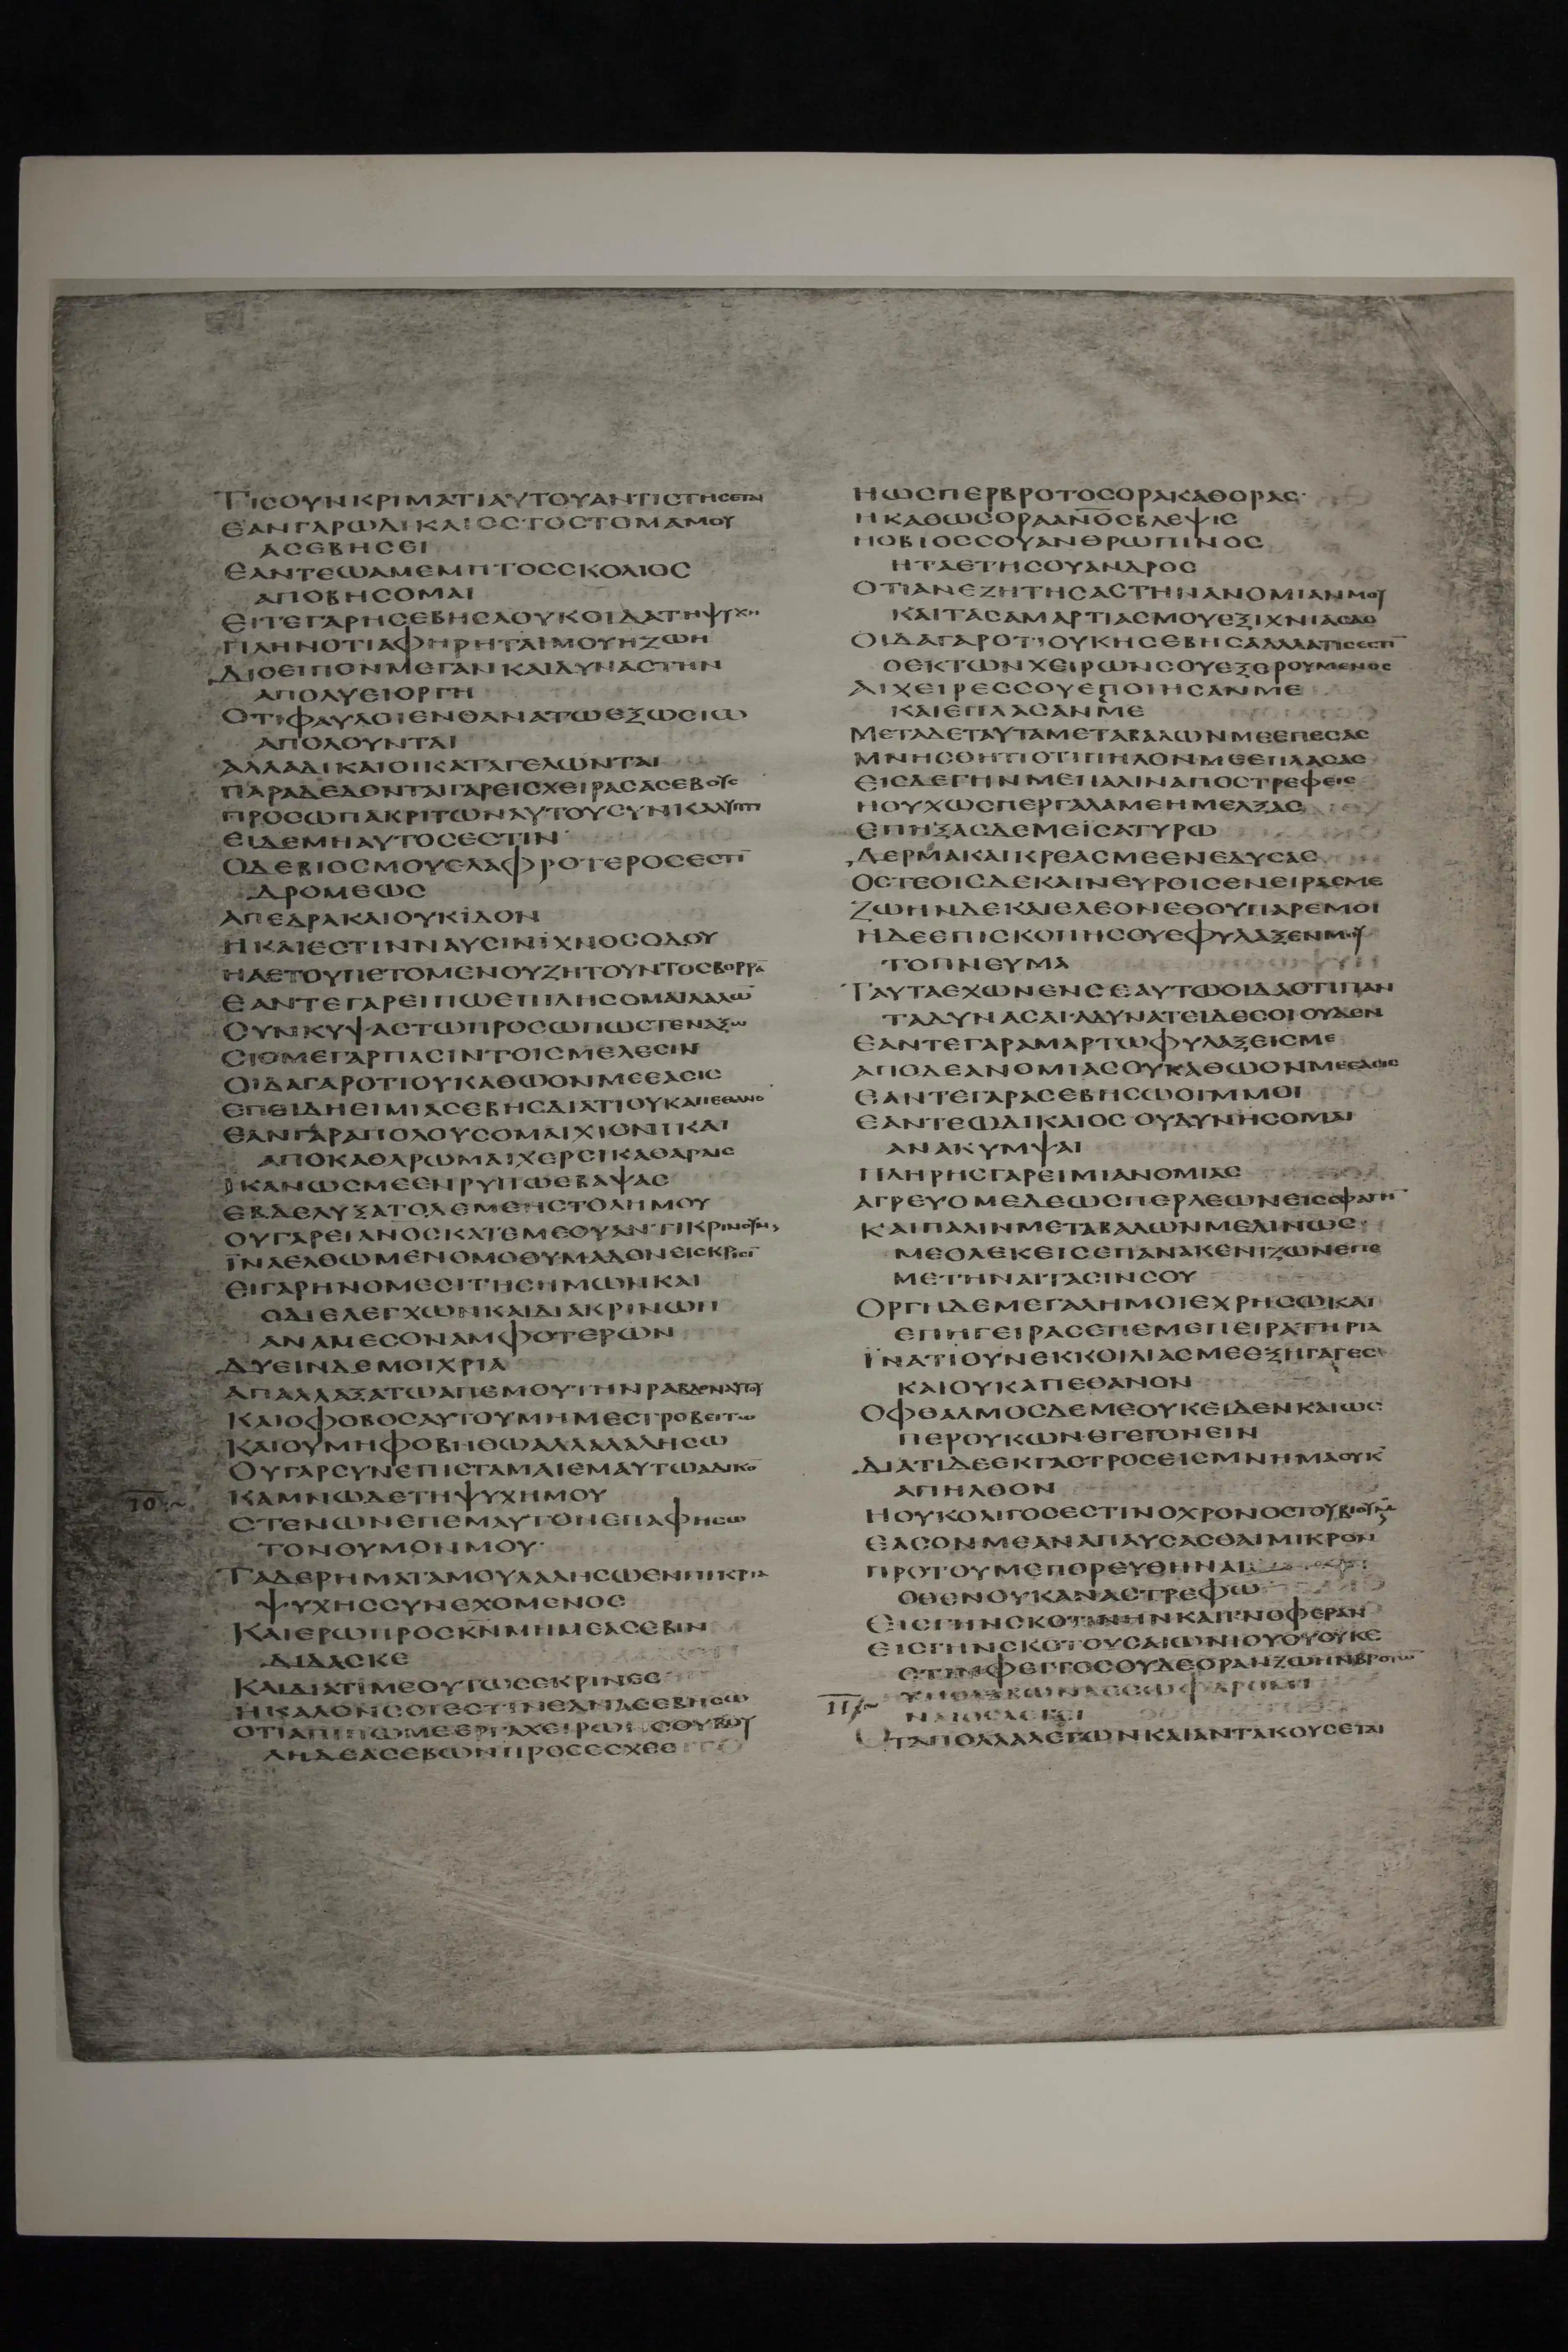 ΤΙСΟΥΝΚΡΙΜΑΤΙΑΥΤΟΥΑΝΤΙСΤΗСΕΤΑΙ
ΕΑΝΓΑΡΩΔΙΚΑΙΟСΤΟСΤΟΜΑΜΟΥ
ΑСΕΒΗСΕΙ
ΕΑΝΤΕΩΑΜΕΜΠΤΟССΚΟΛΙΟС
ΑΠΟΒΗСΟΜΑΙ
ΕΙΤΕΓΑΡΗСΕΒΗСΑΟΥΚΟΙΔΑΤΗΨΥΧΗ
ΠΛΗΝΟΤΙΑΦΗΡΗΤΑΙΜΟΥΗΖΩΗ
ΔΙΟΕΙΠΟΝΜΕΓΑΝΚΑΙΔΥΝΑСΤΗΝ
ΑΠΟΛΥΕΙΟΡΓΗ
ΟΤΙΦΑΥΛΟΙΕΝΘΑΝΑΤΩΕΞΩСΙΩ
ΑΠΟΛΟΥΝΤΑΙ
ΑΛΛΑΔΙΚΑΙΟΙΚΑΤΑΓΕΛΩΝΤΑΙ
ΠΑΡΑΔΕΔΟΝΤΑΙΓΑΡΕΙСΧΕΙΡΑСΑСΕΒΟΥС
ΠΡΟСΩΠΑΚΡΙΤΩΝΑΥΤΟΥСΥΝΚΑΛΥΠΤΙ
ΕΙΔΕΜΗΑΥΤΟСΕСΤΙΝ
ΟΔΕΒΙΟСΜΟΥΕΛΑΦΡΟΤΕΡΟСΕСΤΙ̅
ΔΡΟΜΕΩС
ΑΠΕΔΡΑΚΑΙΟΥΚΙΔΟΝ
ΗΚΑΙΕСΤΙΝΝΑΥСΙΝΙΧΝΟСΟΔΟΥ
ΗΑΕΤΟΥΠΕΤΟΜΕΝΟΥΖΗΤΟΥΝΤΟСΒΟΡΡΑ̅
ΕΑΝΤΕΓΑΡΕΙΠΩΕΠΙΛΗСΟΜΑΙΛΑΛΩ̅
СΥΝΚΥΨΑСΤΩΠΡΟСΩΠΩСΤΕΝΑΞΩ
СΙΟΜΕΓΑΡΠΑСΙΝΤΟΙСΜΕΛΕСΙΝ
ΟΙΔΑΓΑΡΟΤΙΟΥΚΑΘΩΟΝΜΕΕΑСΙС
ΕΠΕΙΔΗΕΙΜΙΑСΕΒΗСΔΙΑΤΙΟΥΚΑΠΕΘΑΝΟ̅
ΕΑΝΓΑΡΑΠΟΛΟΥСΟΜΑΙΧΙΟΝΙΚΑΙ
ΑΠΟΚΑΘΑΡΩΜΑΙΧΕΡСΙΚΑΘΑΡΑΙС
ΙΚΑΝΩСΜΕΕΝΡΥΠΩΕΒΑΨΑС
ΕΒΔΕΛΥΞΑΤΟΔΕΜΕΗСΤΟΛΗΜΟΥ
ΟΥΓΑΡΕΙΑΝΟСΚΑΤΕΜΕΟΥΑΝΤΙΚΡΙΝΟΥΜΕ
ΪΝΑΕΛΘΩΜΕΝΟΜΟΘΥΜΑΔΟΝΕΙСΚΡΙСΙ̅
ΕΙΓΑΡΗΝΟΜΕСΙΤΗСΗΜΩΝΚΑΙ
ΟΔΙΕΛΕΓΧΩΝΚΑΙΔΙΑΚΡΙΝΩΝ
ΑΝΑΜΕСΟΝΑΜΦΟΤΕΡΩΝ
ΔΥΕΙΝΔΕΜΟΙΧΡΙΑ
ΑΠΑΛΛΑΞΑΤΩΑΠΕΜΟΥΤΗΝΡΑΒΔΟΝΑΥΤΟΥ
ΚΑΙΟΦΟΒΟСΑΥΤΟΥΜΗΜΕСΤΡΟΒΕΙΤΩ
ΚΑΙΟΥΜΗΦΟΒΗΘΩΑΛΛΑΛΑΛΗСΩ
ΟΥΓΑΡСΥΝΕΠΙСΤΑΜΑΙΕΜΑΥΤΩΑΔΙΚΟ̅
10 ΚΑΜΝΩΔΕΤΗΨΥΧΗΜΟΥ
СΤΕΝΩΝΕΠΕΜΑΥΤΟΝΕΠΑΦΗСΩ
ΤΟΝΘΥΜΟΝΜΟΥ
ΤΑΔΕΡΗΜΑΤΑΜΟΥΛΑΛΗСΩΕΝΠΙΚΡΙΑ
ΨΥΧΗССΥΝΕΧΟΜΕΝΟС
ΚΑΙΕΡΩΠΡΟСΚ̅Ν̅ΜΗΜΕΑСΕΒΙΝ
ΔΙΔΑСΚΕ
ΚΑΙΔΙΑΤΙΜΕΟΥΤΩСΕΚΡΙΝΕС
ΗΚΑΛΟΝСΟΙΕСΤΙΝΕΑΝΑСΕΒΗСΩ
ΟΤΙΑΠΙΠΩΜΕΕΡΓΑΧΕΙΡΩΝСΟΥΒΟΥ
ΛΗΔΕΑСΕΒΩΝΠΡΟСΕСΧΕС
ΗΩСΠΕΡΒΡΟΤΟСΟΡΑΚΑΘΟΡΑС
ΗΚΑΘΩСΟΡΑΑΝ̅Ο̅С̅ΒΛΕΨΙС
ΗΟΒΙΟССΟΥΑΝΘΡΩΠΙΝΟС
ΗΤΑΕΤΗСΟΥΑΝΔΡΟС
ΟΤΙΑΝΕΖΗΤΗСΑСΤΗΝΑΝΟΜΙΑΝΜΟΥ
ΚΑΙΤΑСΑΜΑΡΤΙΑСΜΟΥΕΞΙΧΝΙΑСΑС
ΟΙΔΑΓΑΡΟΤΙΟΥΚΗСΕΒΗСΑΑΛΛΑΤΙСΕСΤΙ̅
ΟΕΚΤΩΝΧΕΙΡΩΝСΟΥΕΞΕΡΟΥΜΕΝΟС
ΑΙΧΕΙΡΕССΟΥΕΠΟΙΗСΑΝΜΕ
ΚΑΙΕΠΛΑСΑΝΜΕ
ΜΕΤΑΔΕΤΑΥΤΑΜΕΤΑΒΑΛΩΝΜΕΕΠΕСΑС
ΜΝΗСΘΗΤΙΟΤΙΠΗΛΟΝΜΕΕΠΛΑСΑС
ΕΙСΔΕΓΗΝΜΕΠΑΛΙΝΑΠΟСΤΡΕΦΕΙС
ΗΟΥΧΩСΠΕΡΓΑΛΑΜΕΗΜΕΛΞΑС
ΕΠΗΞΑСΔΕΜΕΪСΑΤΥΡΩ
ΔΕΡΜΑΚΑΙΚΡΕΑСΜΕΕΝΕΔΥСΑС
ΟСΤΕΟΙСΔΕΚΑΙΝΕΥΡΟΙСΕΝΕΙΡΑСΜΕ
ΖΩΗΝΔΕΚΑΙΕΛΕΟΝΕΘΟΥΠΑΡΕΜΟΙ
ΗΔΕΕΠΙСΚΟΠΗСΟΥΕΦΥΛΑΞΕΝΜΟΥ
ΤΟΠΝΕΥΜΑ
ΤΑΥΤΑΕΧΩΝΕΝСΕΑΥΤΩΟΙΔΑΟΤΙΠΑΝ
ΤΑΔΥΝΑСΑΙΑΔΥΝΑΤΕΙΔΕСΟΙΟΥΔΕΝ
ΕΑΝΤΕΓΑΡΑΜΑΡΤΩΦΥΛΑΞΕΙСΜΕ
ΑΠΟΔΕΑΝΟΜΙΑСΟΥΚΑΘΩΟΝΜΕΕΑСΙС
ΕΑΝΤΕΓΑΡΑСΕΒΗСΩΟΙΜΜΟΙ
ΕΑΝΤΕΩΔΙΚΑΙΟСΟΥΔΥΝΗСΟΜΑΙ
ΑΝΑΚΥΜΨΑΙ
ΠΛΗΡΗСΓΑΡΕΙΜΙΑΝΟΜΙΑС
ΑΓΡΕΥΟΜΕΔΕΩСΠΕΡΛΕΩΝΕΙССΦΑΓΗ̅
ΚΑΙΠΑΛΙΝΜΕΤΑΒΑΛΩΝΜΕΔΙΝΩС
ΜΕΟΛΕΚΕΙСΕΠΑΝΑΚΕΝΙΖΩΝΕΠΕ
ΜΕΤΗΝΑΙΤΑСΙΝСΟΥ
ΟΡΓΗΔΕΜΕΓΑΛΗΜΟΙΕΧΡΗСΩΚΑΙ
ΕΠΗΓΕΙΡΑСΕΠΕΜΕΠΕΙΡΑΤΗΡΙΑ
ΪΝΑΤΙΟΥΝΕΚΚΟΙΛΙΑСΜΕΕΞΗΓΑΓΕС
ΚΑΙΟΥΚΑΠΕΘΑΝΟΝ
ΟΦΘΑΛΜΟСΔΕΜΕΟΥΚΕΙΔΕΝΚΑΙΩС
ΠΕΡΟΥΚΩΝΕΓΕΓΟΝΕΙΝ
ΔΙΑΤΙΔΕΕΚΓΑСΤΡΟСΕΙСΜΝΗΜΑΟΥΚ
ΑΠΗΛΘΟΝ
ΗΟΥΚΟΛΙΓΟСΕСΤΙΝΟΧΡΟΝΟСΤΟΥΒΙΟΥ
ΕΑСΟΝΜΕΑΝΑΠΑΥСΑСΘΑΙΜΙΚΡΟΝ
ΠΡΟΤΟΥΜΕΠΟΡΕΥΘΗΝΑΙ
ΟΘΕΝΟΥΚΑΝΑСΤΡΕΦΩ
ΕΙСΓΗΝСΚΟΤΙΝΗΝΚΑΙΓΝΟΦΕΡΑΝ
ΕΙСΓΗΝСΚΟΤΟΥСΑΙΩΝΙΟΥΟΥΟΥΚΕ
СΤΙΝΦΕΓΓΟСΟΥΔΕΟΡΑΝΖΩΗΝΒΡΟΤΩ̅
11
ΟΤΑΠΟΛΛΑΛΕΓΩΝΚΑΙΑΝΤΑΚΟΥСΕΤΑΙ